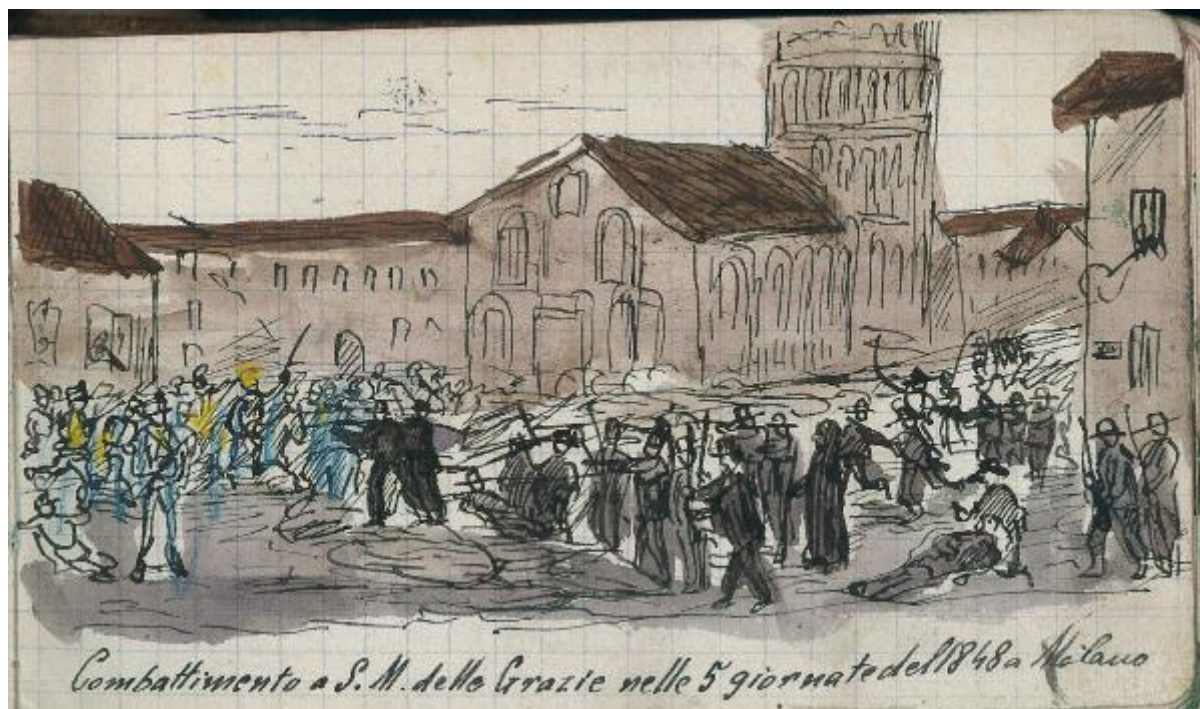 Combattimento a S. M. delle Grazie nelle 5 giornate del 1848 a Milano